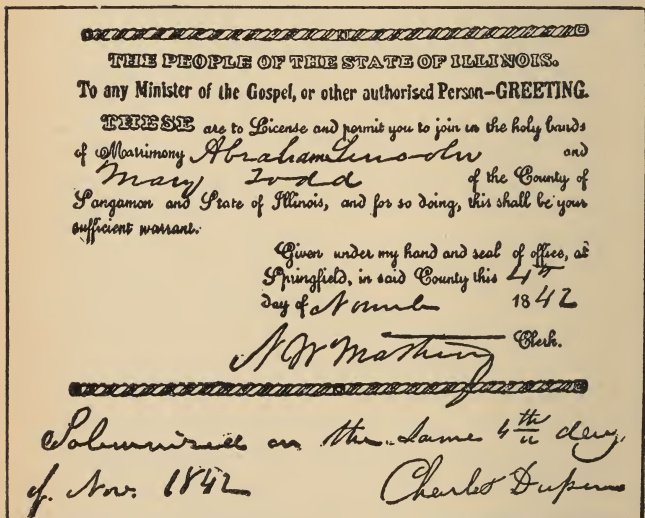 THE PEOPLE OF THE STATE OF ILLINOIS.
To any Minister of the Gospel, or other authorised Person—GREETING.
THESE are to License and permit you to join in the holy bands
of Matrimony Abraham Lincoln and
Mary Todd of the County of
Sangamon and State of Illinois, and for so doing, this shall be your
sufficient warrant.
Given under my hand and seal of office, at
Springfield, in said County this 4th
day of 1842
Clerk.
N W
Solemnized on the same 4th day
of Nov. 1842 Charles